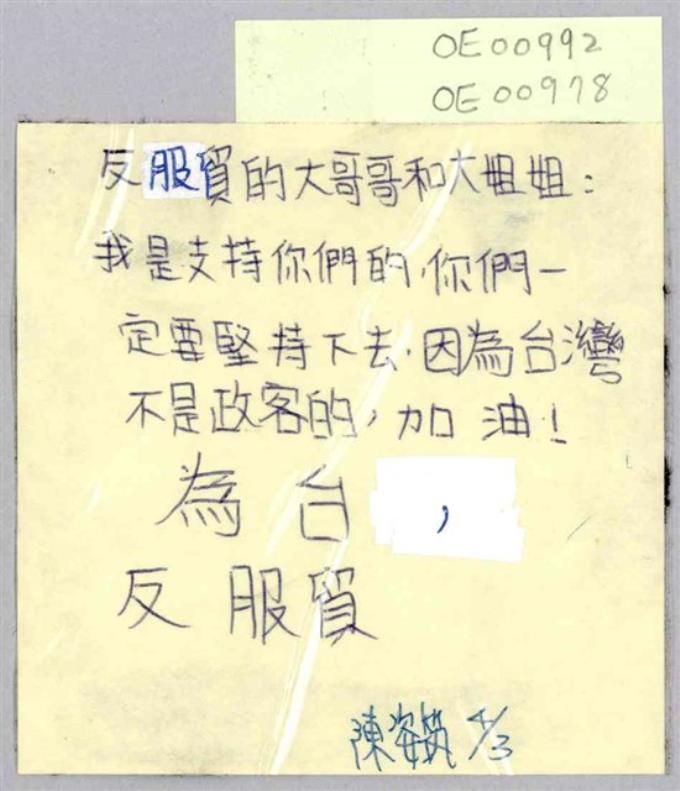 OE00992
OE00978
反服貿的大哥哥和大姐姐:
我是支持你們的,你們一
定要堅持下去,因為台灣
不是政客的,加油!
為台,
反服貿
陳姿筑 4/3